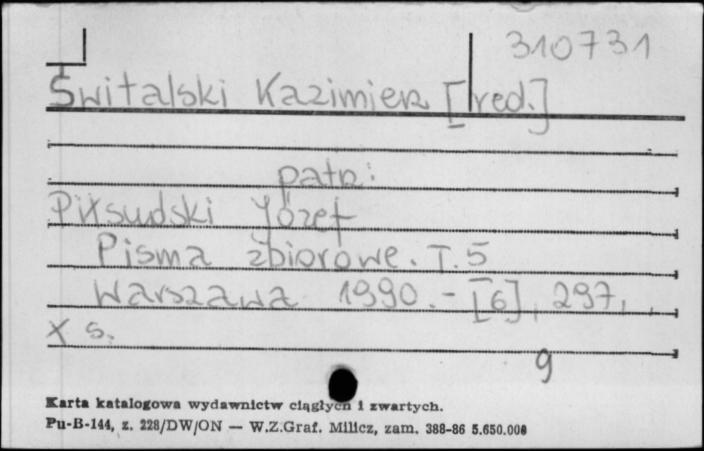 310731
Świtalski Kazimierz [red.]
patrz:
Piłsudski Józef
Pisma zbiorowe. T. 5
Warszawa 1990. - [6], 297,
X s.
9
Karta katalogowa wydawnictw ciągłych i zwartych.
Pu-B-144, z. 228/DW/ON — W.Z.Graf. Milicz, zam. 388-86 5.650.000